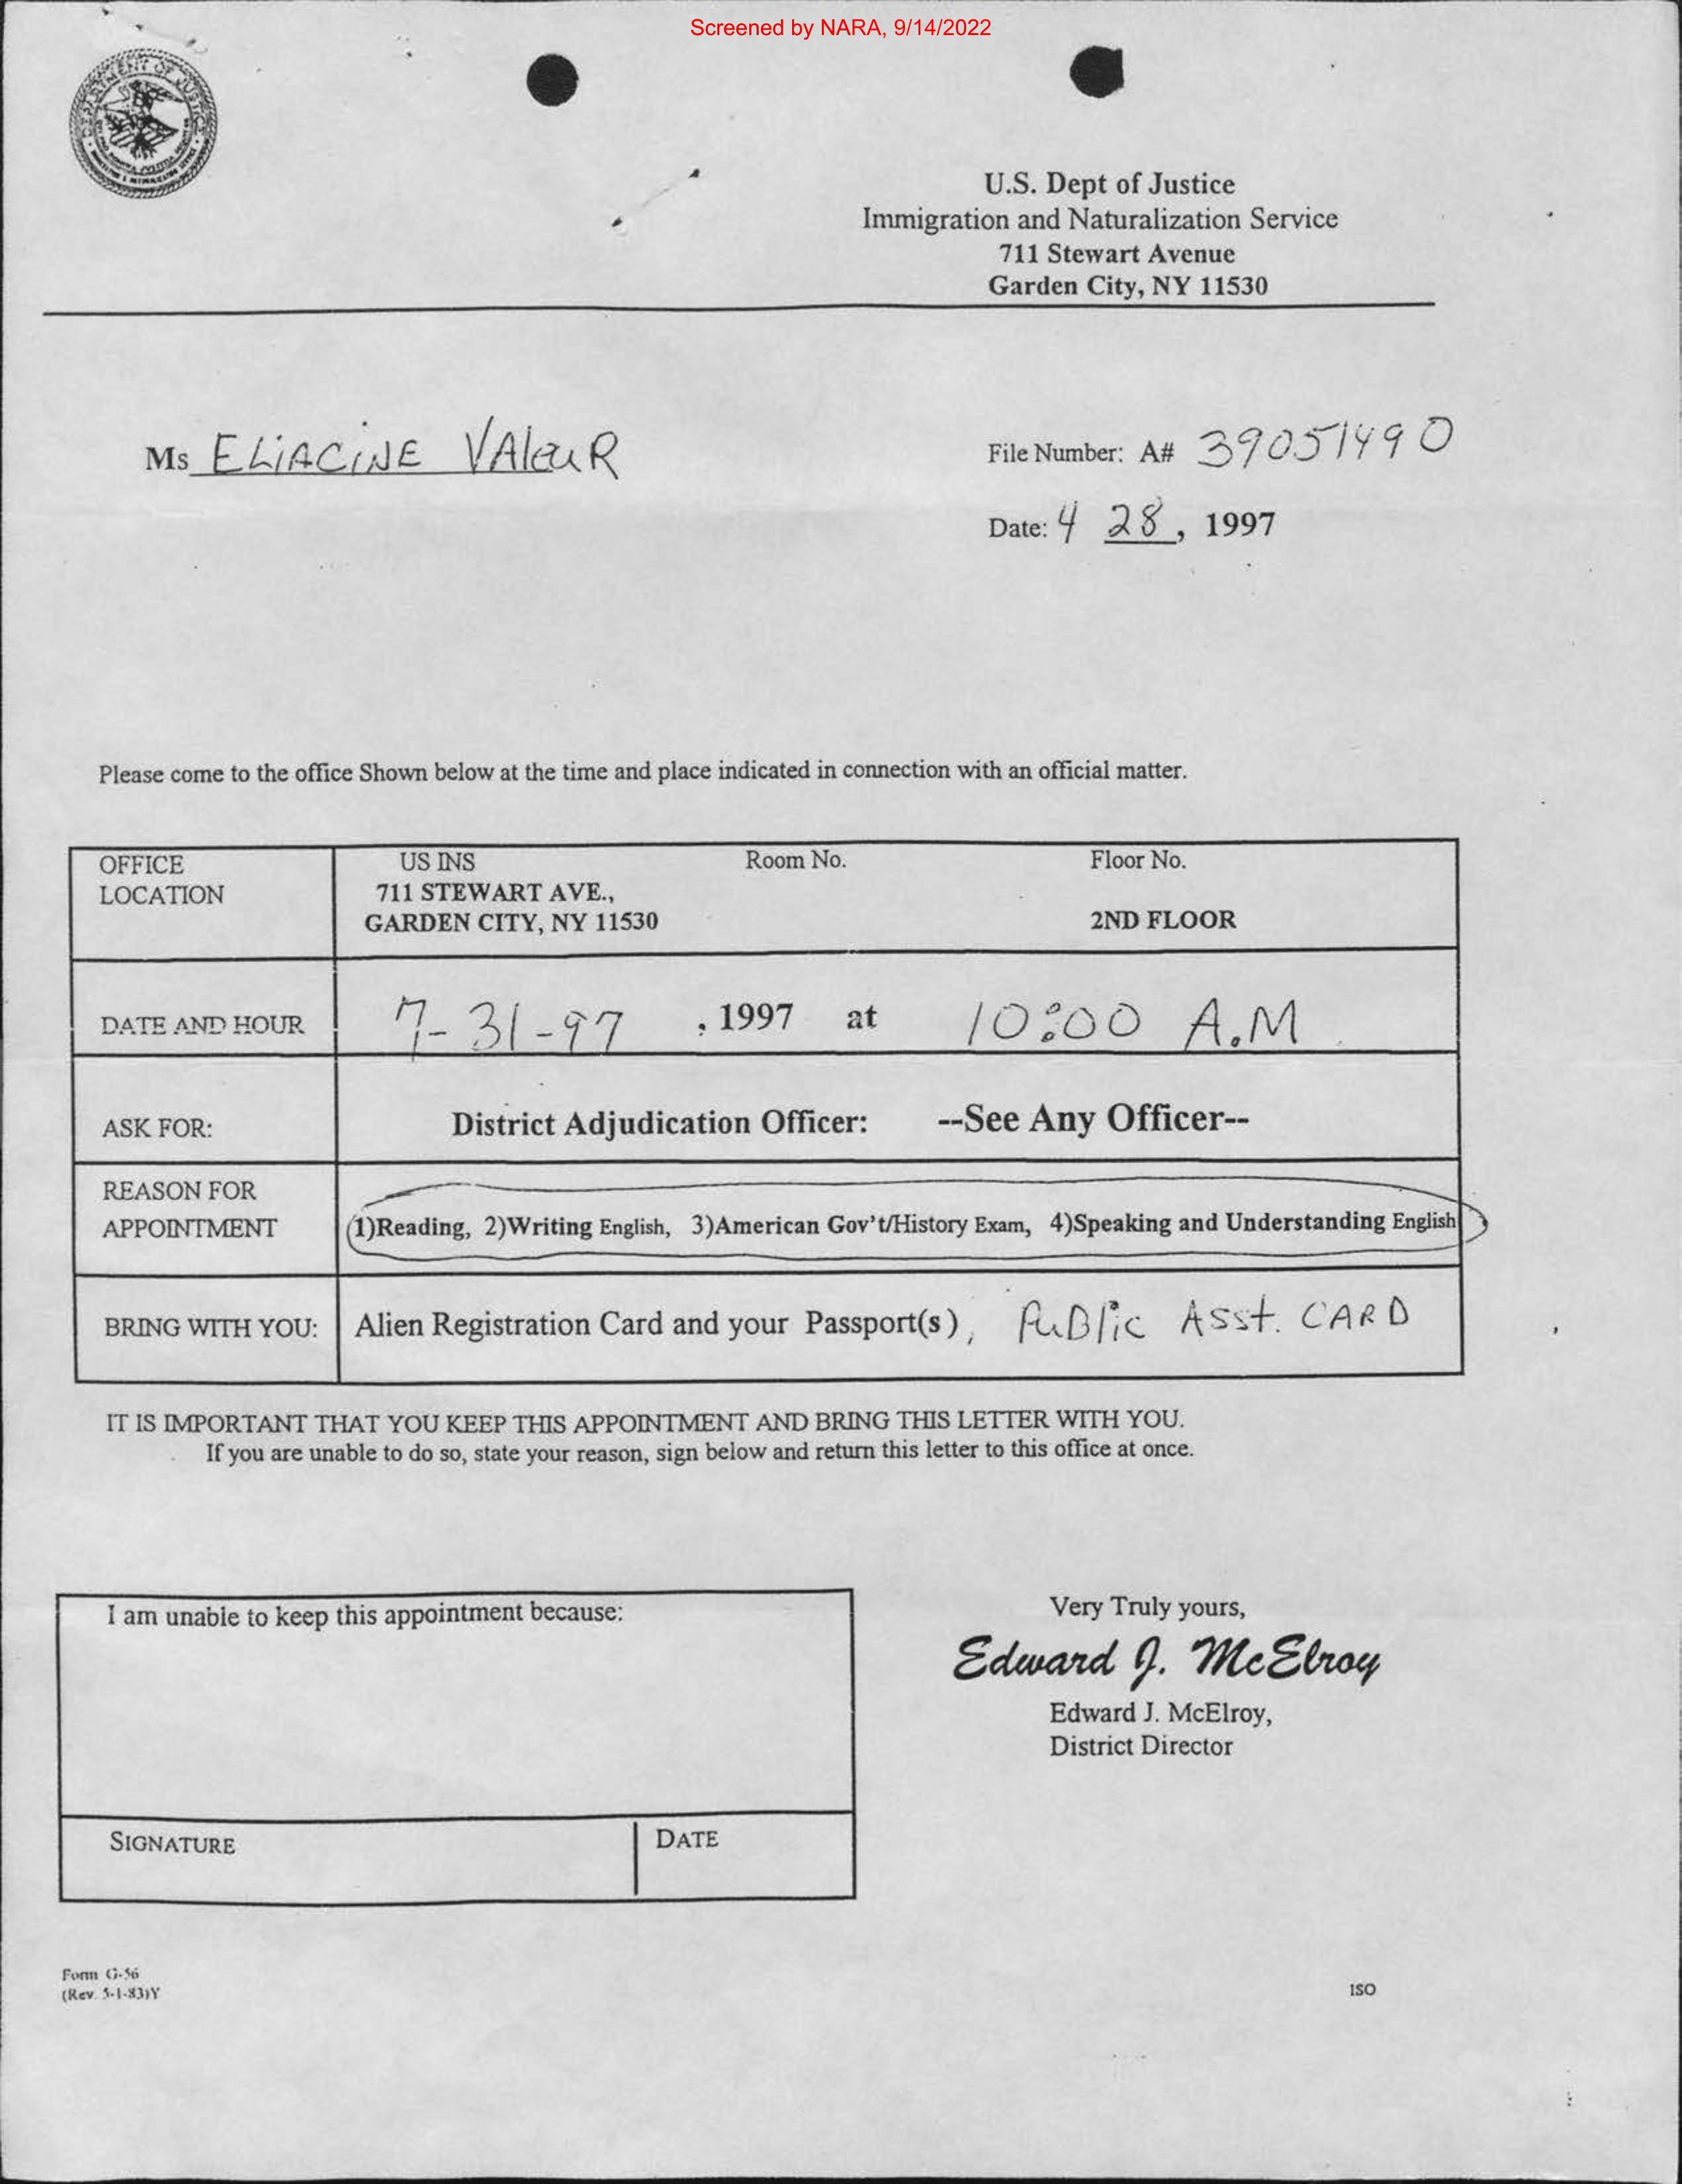 Screened by NARA, 9/14/2022
DEPARTMENT OF JUSTICE
U.S. Dept of Justice
Immigration and Naturalization Service
711 Stewart Avenue
Garden City, NY 11530
Ms ELiACiNE VAleuR
File Number: A# 39051490
Date: 4 28, 1997
Please come to the office Shown below at the time and place indicated in connection with an official matter.
OFFICE LOCATION
US INS
711 STEWART AVE.,
GARDEN CITY, NY 11530
Room No.
Floor No.
2ND FLOOR
DATE AND HOUR
7-31-97 , 1997 at 10:00 A.M
ASK FOR:
District Adjudication Officer: --See Any Officer--
REASON FOR
APPOINTMENT
1)Reading, 2)Writing English, 3)American Gov't/History Exam, 4)Speaking and Understanding English
BRING WITH YOU:
Alien Registration Card and your Passport(s), PuBlic Asst. CARD
IT IS IMPORTANT THAT YOU KEEP THIS APPOINTMENT AND BRING THIS LETTER WITH YOU.
If you are unable to do so, state your reason, sign below and return this letter to this office at once.
I am unable to keep this appointment because:
SIGNATURE
DATE
Very Truly yours,
Edward J. McElroy
Edward J. McElroy,
District Director
Form G-56
(Rev. 5-1-83)Y
ISO